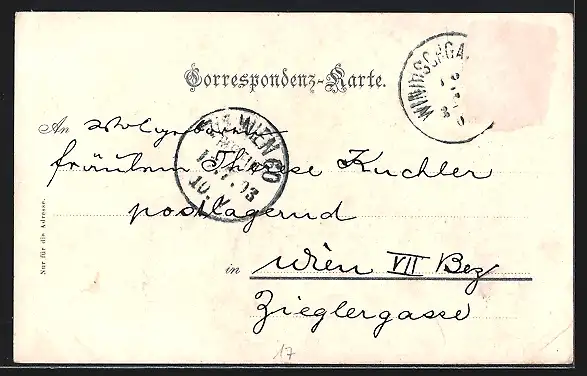 Correspondenz-Karte.
WINDISCHGA
An Wolgeboren
fräulein Therese Kuchler
WIEN 60
postlagernd
Nur für die Adresse.
in Wien VII Bez
Zieglergasse
17